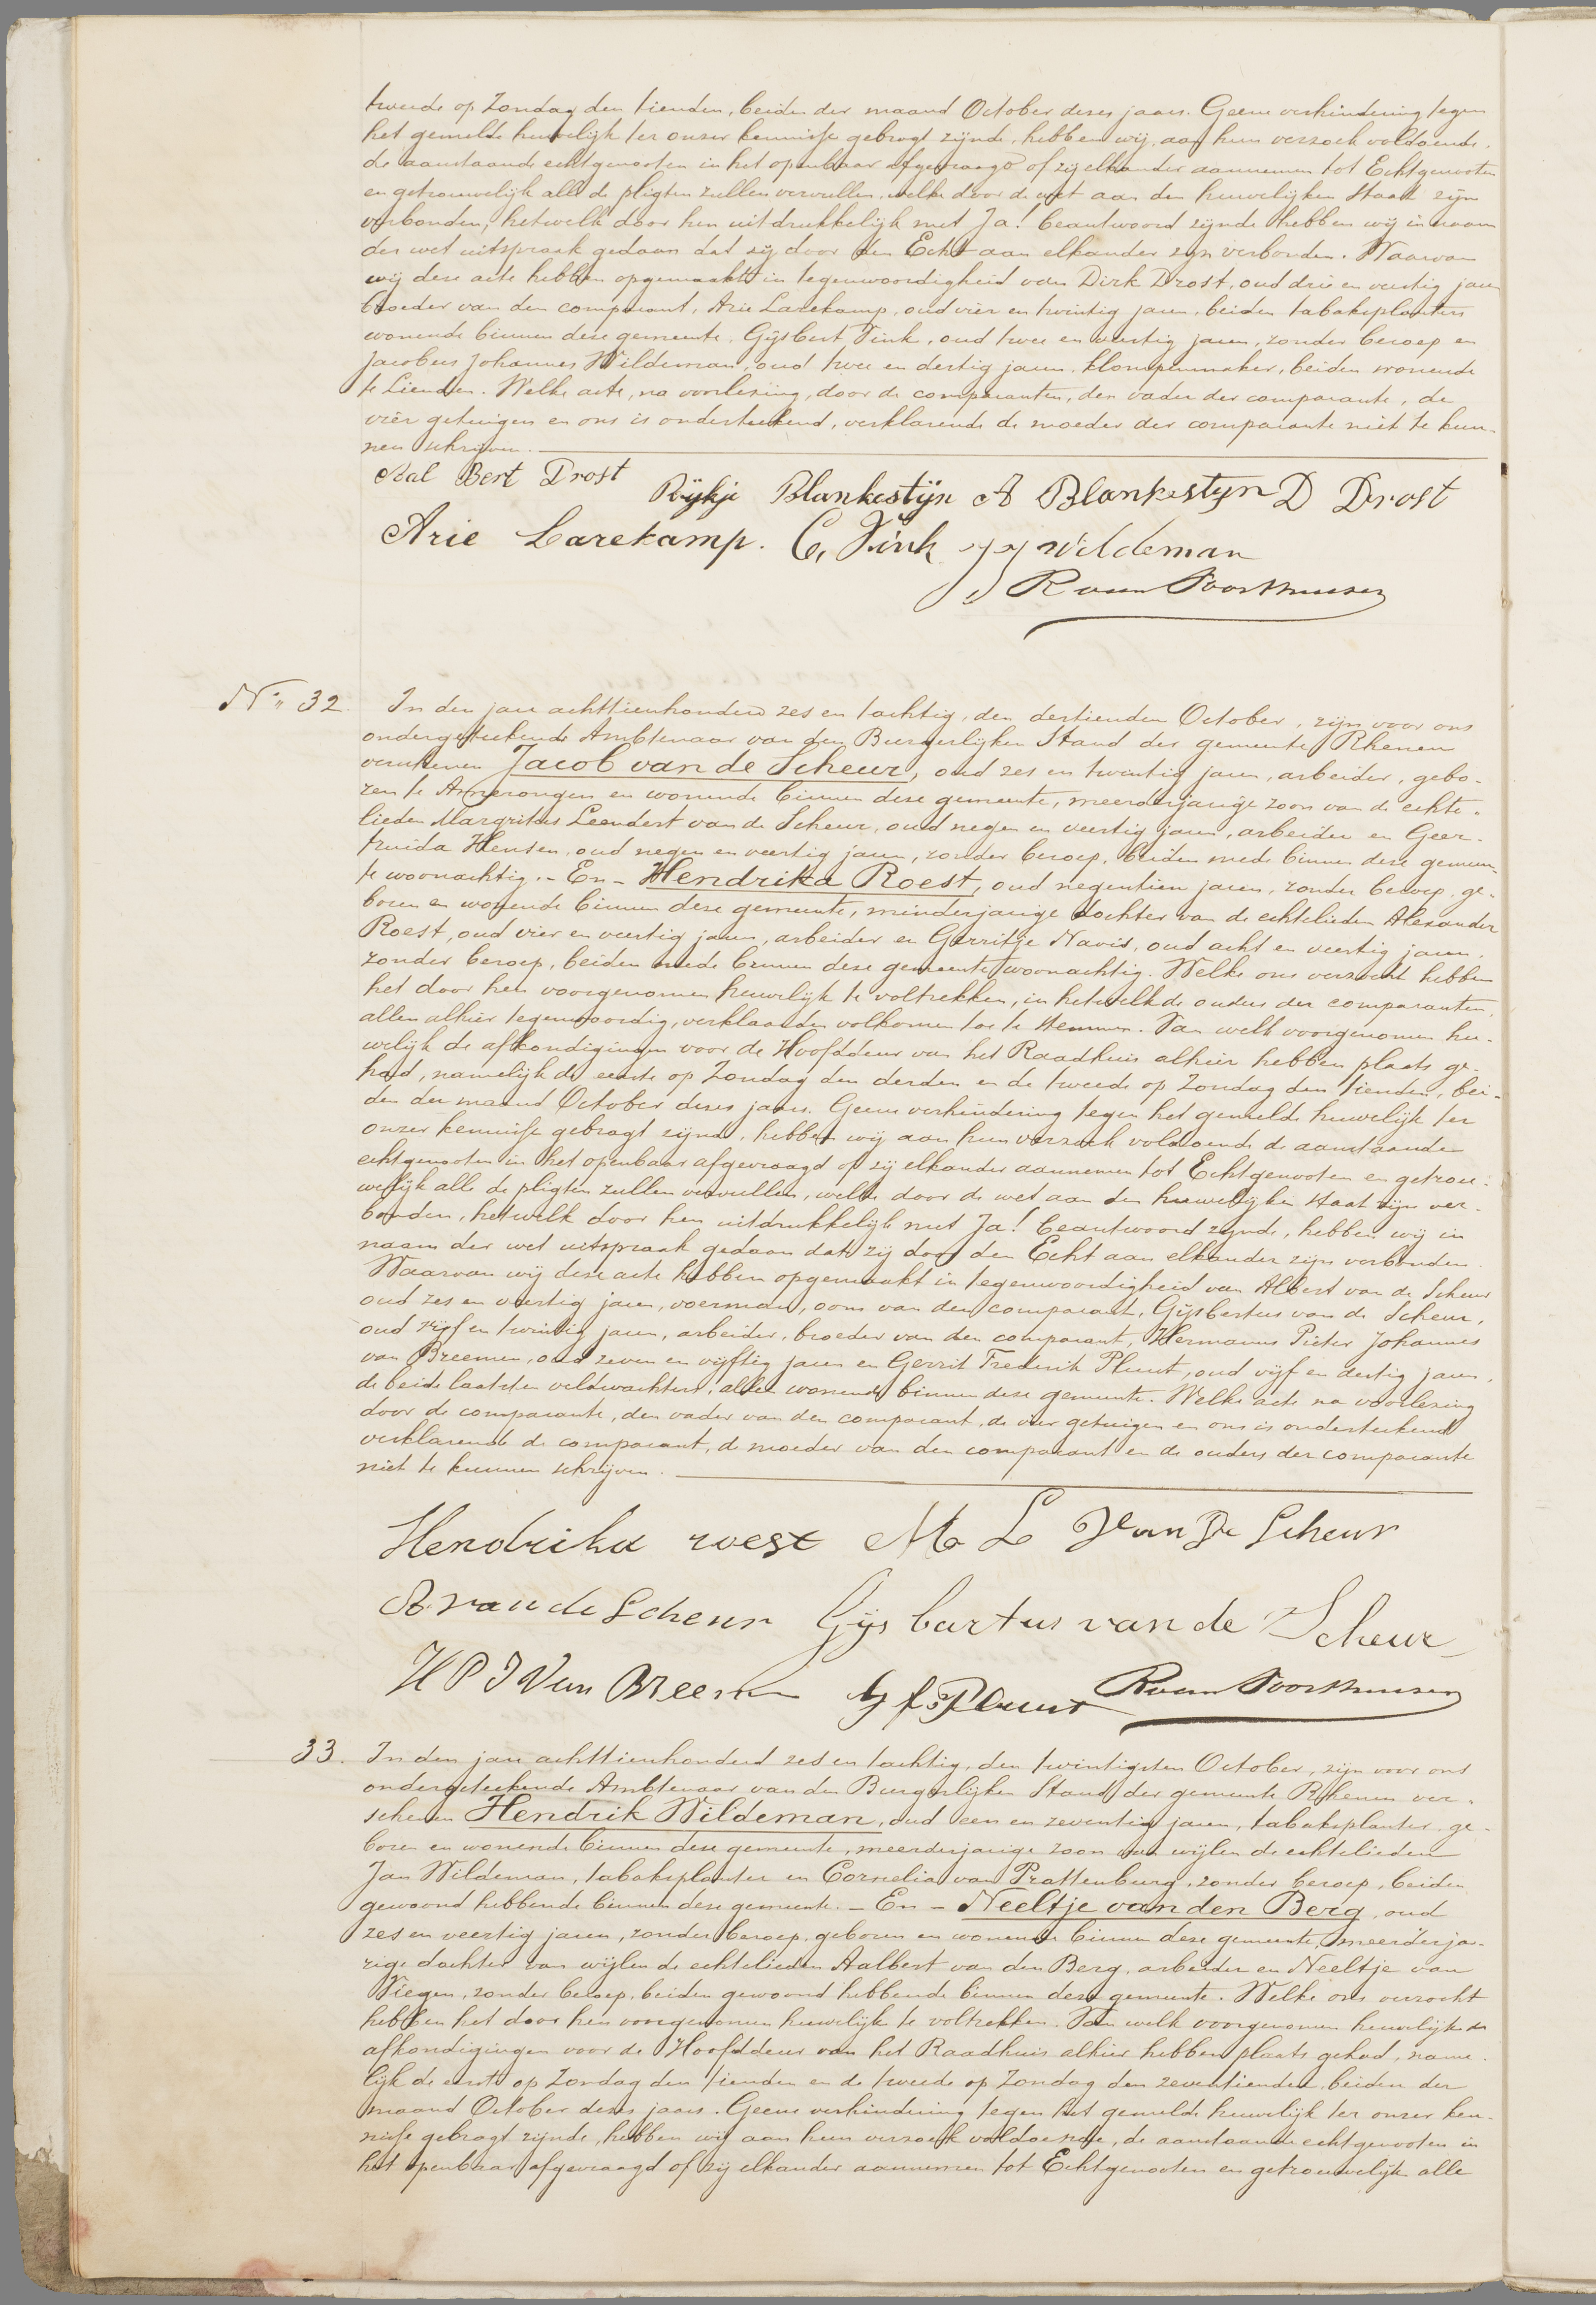 tweede op Zondag den tienden, beiden der maand October dezes jaars. Geene verhindering tegen
het gemelde huwelijk ter onzer kennisse gebragt zijnde, hebben wij, aan hun verzoek voldoende,
de aanstaande echtgenooten in het openbaar afgevraagd of zij elkander aannemen tot Echtgenooten
en getrouwelijk alle de pligten zullen vervullen, welke door de wet aan den huwelijken Staat zijn
verbonden, hetwelk door hen uitdrukkelijk met Ja! beantwoord zijnde hebben wij in naam
der wet uitspraak gedaan dat zij door den Echt aan elkander zijn verbonden. Waarvan
wij deze acte hebben opgemaakt in tegenwoordigheid van Dirk Drost, oud drie en veertig jaren
broeder van den comparant, Arie Larekamp, oud vier en twintig jaren, beiden tabaksplanters
wonende binnen deze gemeente, Gijsbert Vink, oud twee en veertig jaren, zonder beroep en
Jacobus Johannes Wildeman, oud twee en dertig jaren, klompenmaker, beiden wonende
te Lienden. Welke acte, na voorlezing, door de comparanten, den vader der comparante, de
vier getuigen en ons is onderteekend, verklarende de moeder der comparante niet te kun-
nen schrijven.
Aal Bert Drost Rijkje Blankestijn A Blankestyn D Drost
Arie Larekamp. G, Vink J J Wildeman
R van Voorthuisen
No. 32. In den jare achttienhonderd zes en tachtig, den dertienden October, zijn voor ons
ondergeteekende Ambtenaar van den Burgerlijken Stand der gemeente Rhenen
verschenen Jacob van de Scheur, oud zes en twintig jaren, arbeider, gebo-
ren te Amerongen en wonende binnen deze gemeente, meerderjarige zoon van de echte-
lieden Margritus Leendert van de Scheur, oud negen en veertig jaren, arbeider en Geer-
truida Hensen, oud negen en veertig jaren, zonder beroep, beiden mede binnen deze gemeen-
te woonachtig. - En - Hendrika Roest, oud negentien jaren, zonder beroep, ge-
boren en wonende binnen deze gemeente, minderjarige dochter van de echtelieden Alexander
Roest, oud vier en veertig jaren, arbeider en Gerritje Navis, oud acht en veertig jaren,
zonder beroep, beiden mede binnen deze gemeente woonachtig. Welke ons verzocht hebben
het door hen voorgenomen huwelijk te voltrekken, in hetwelk de ouders der comparanten,
allen alhier tegenwoordig, verklaarden volkomen toe te stemmen. Van welk voorgenomen hu-
welijk de afkondigingen voor de Hoofddeur van het Raadhuis alhier hebben plaats ge-
had, namelijk de eerste op Zondag den derden en de tweede op Zondag den tienden, bei-
den der maand October dezes jaars. Geene verhindering tegen het gemelde huwelijk ter
onzer kennisse gebragt zijnde, hebben wij aan hun verzoek voldoende de aanstaande
echtgenooten in het openbaar afgevraagd of zij elkander aannemen tot Echtgenooten en getrou-
welijk alle de pligten zullen vervullen, welke door de wet aan den huwelijken staat zijn ver-
bonden, hetwelk door hen uitdrukkelijk met Ja! beantwoord zijnde, hebben wij in
naam der wet uitspraak gedaan dat zij door den Echt aan elkander zijn verbonden.
Waarvan wij deze acte hebben opgemaakt in tegenwoordigheid van Albert van de Scheur
oud zes en veertig jaren, voerman, oom van den comparant, Gijsbertus van de Scheur,
oud vijf en twintig jaren, arbeider, broeder van den comparant, Hermanus Pieter Johannes
van Breemen, oud zeven en vijftig jaren en Gerrit Frederik Pluut, oud vijf en dertig jaren,
de beide laatsten veldwachters, allen wonende binnen deze gemeente. Welke acte na voorlezing
door de comparante, den vader van den comparant, de vier getuigen en ons is onderteekend
verklarende de comparant, de moeder van den comparant en de ouders der comparante
niet te kunnen schrijven.
Hendrika roest M L Van De Scheur
A. van de Scheur Gijsbartus van de Scheur
H P J Van Breemen G f Pluut R van Voorthuisen
33. In den jare achttienhonderd zes en tachtig, den twintigsten October, zijn voor ons
ondergeteekende Ambtenaar van den Burgerlijken Stand der gemeente Rhenen ver-
schenen Hendrik Wildeman, oud een en zeventig jaren, tabaksplanter, ge-
boren en wonende binnen deze gemeente, meerderjarige zoon van wijlen de echtelieden
Jan Wildeman, tabaksplanter en Cornelia van Prattenburg, zonder beroep, beiden
gewoond hebbende binnen deze gemeente. - En - Neeltje van den Berg, oud
zes en veertig jaren, zonder beroep, geboren en wonende binnen deze gemeente, meerderja-
rige dochter van wijlen de echtelieden Aalbert van den Berg, arbeider en Neeltje van
Viegen, zonder beroep, beiden gewoond hebbende binnen deze gemeente. Welke ons verzocht
hebben het door hen voorgenomen huwelijk te voltrekken. Van welk voorgenomen huwelijk de
afkondigingen voor de Hoofddeur van het Raadhuis alhier hebben plaats gehad, name-
lijk de eerste op Zondag den tienden en de tweede op Zondag den zeventienden, beiden der
maand October dezes jaars. Geene verhindering tegen het gemelde huwelijk ter onzer ken-
nisse gebragt zijnde, hebben wij aan hun verzoek voldoende, de aanstaande echtgenooten in
het openbaar afgevraagd of zij elkander aannemen tot Echtgenooten en getrouwelijk alle